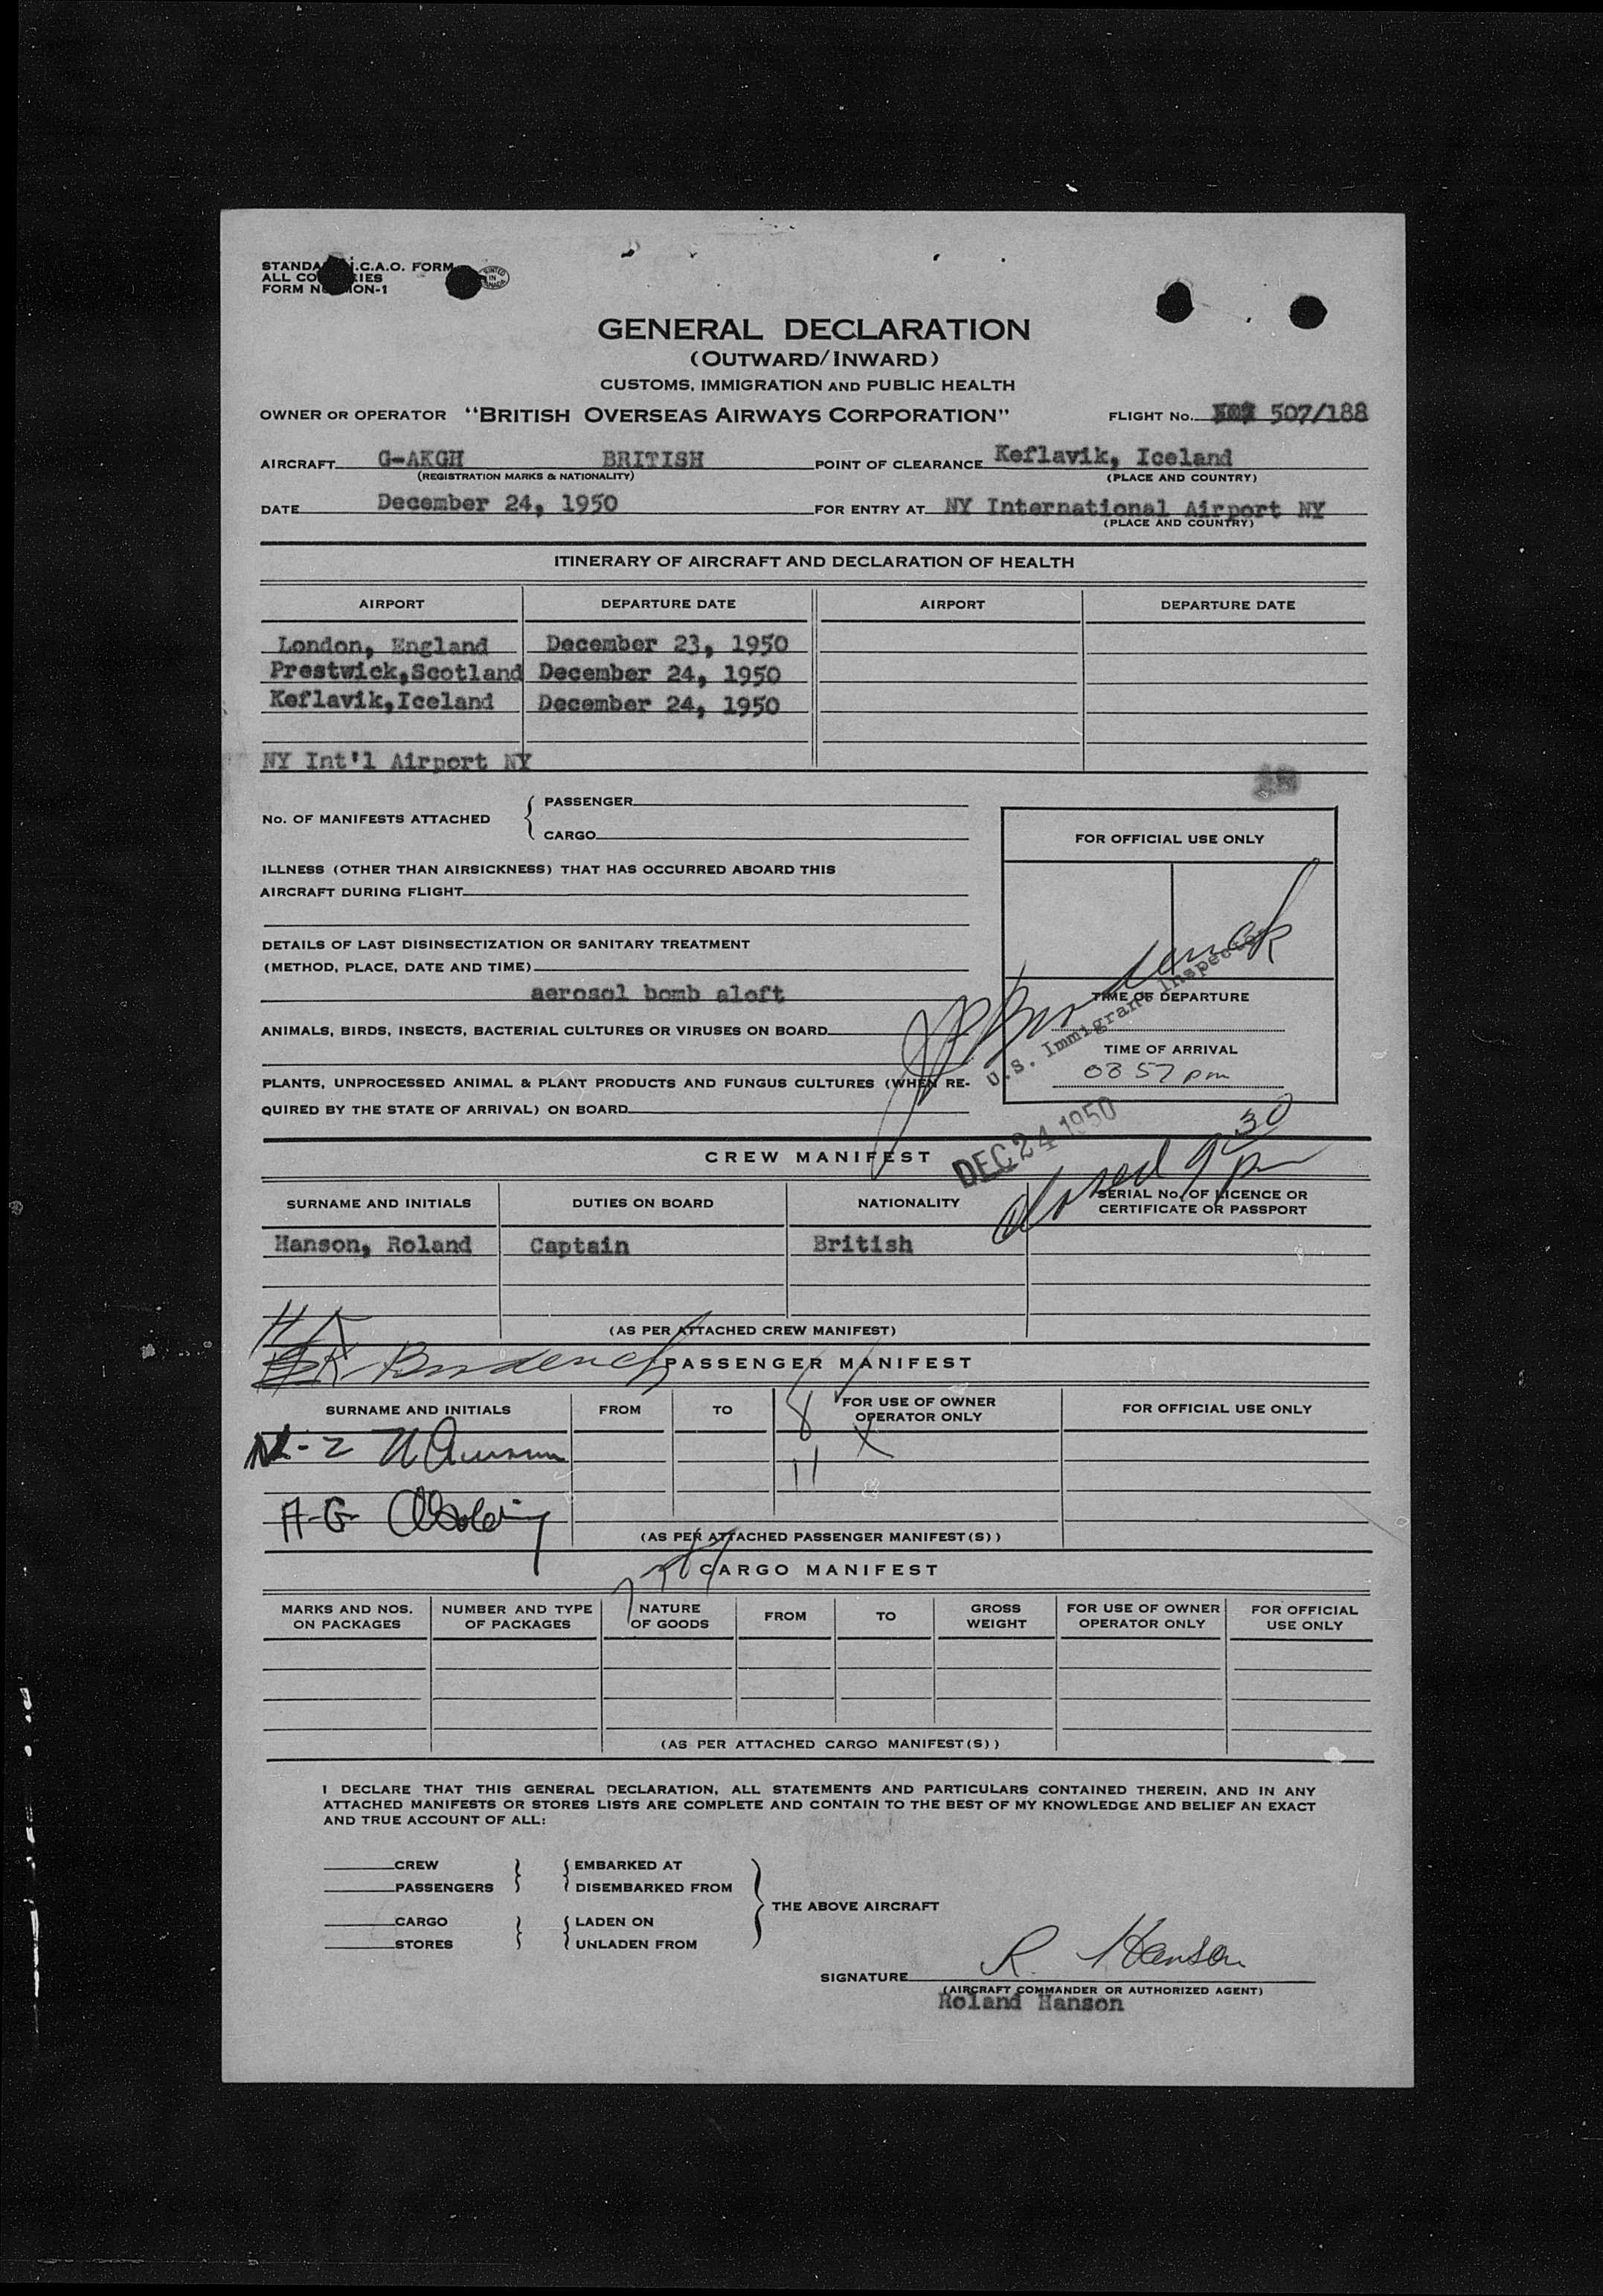 STANDA .C.A.O. FORM
ALL CO IES
FORM N MON-1
PRINTED IN CANADA
GENERAL DECLARATION
(OUTWARD/INWARD)
CUSTOMS, IMMIGRATION AND PUBLIC HEALTH
OWNER OR OPERATOR "BRITISH OVERSEAS AIRWAYS CORPORATION" FLIGHT No. 507/188
AIRCRAFT G-AKGH BRITISH POINT OF CLEARANCE Keflavik, Iceland
(REGISTRATION MARKS & NATIONALITY) (PLACE AND COUNTRY)
DATE December 24, 1950 FOR ENTRY AT NY International Airport NY
(PLACE AND COUNTRY)
ITINERARY OF AIRCRAFT AND DECLARATION OF HEALTH
AIRPORT DEPARTURE DATE AIRPORT DEPARTURE DATE
London, England December 23, 1950
Prestwick,Scotland December 24, 1950
Keflavik,Iceland December 24, 1950
NY Int'l Airport NY
No. OF MANIFESTS ATTACHED { PASSENGER
CARGO
FOR OFFICIAL USE ONLY
ILLNESS (OTHER THAN AIRSICKNESS) THAT HAS OCCURRED ABOARD THIS
AIRCRAFT DURING FLIGHT
DETAILS OF LAST DISINSECTIZATION OR SANITARY TREATMENT
(METHOD, PLACE, DATE AND TIME)
aerosol bomb aloft
TIME OF DEPARTURE
U.S. Immigrant Inspector
ANIMALS, BIRDS, INSECTS, BACTERIAL CULTURES OR VIRUSES ON BOARD
TIME OF ARRIVAL
08 57 pm
PLANTS, UNPROCESSED ANIMAL & PLANT PRODUCTS AND FUNGUS CULTURES (WHEN RE-
QUIRED BY THE STATE OF ARRIVAL) ON BOARD
DEC 24 1950
closed 9 30 pm
CREW MANIFEST
SURNAME AND INITIALS DUTIES ON BOARD NATIONALITY SERIAL No. OF LICENCE OR
CERTIFICATE OR PASSPORT
Hanson, Roland Captain British
(AS PER ATTACHED CREW MANIFEST)
PASSENGER MANIFEST
SURNAME AND INITIALS FROM TO FOR USE OF OWNER
OPERATOR ONLY FOR OFFICIAL USE ONLY
8
11
A-G
(AS PER ATTACHED PASSENGER MANIFEST(S))
CARGO MANIFEST
MARKS AND NOS.
ON PACKAGES NUMBER AND TYPE
OF PACKAGES NATURE
OF GOODS FROM TO GROSS
WEIGHT FOR USE OF OWNER
OPERATOR ONLY FOR OFFICIAL
USE ONLY
(AS PER ATTACHED CARGO MANIFEST(S))
I DECLARE THAT THIS GENERAL DECLARATION, ALL STATEMENTS AND PARTICULARS CONTAINED THEREIN, AND IN ANY
ATTACHED MANIFESTS OR STORES LISTS ARE COMPLETE AND CONTAIN TO THE BEST OF MY KNOWLEDGE AND BELIEF AN EXACT
AND TRUE ACCOUNT OF ALL:
CREW } { EMBARKED AT
PASSENGERS DISEMBARKED FROM
} THE ABOVE AIRCRAFT
CARGO } { LADEN ON
STORES UNLADEN FROM
SIGNATURE R. Hanson
(AIRCRAFT COMMANDER OR AUTHORIZED AGENT)
Roland Hanson